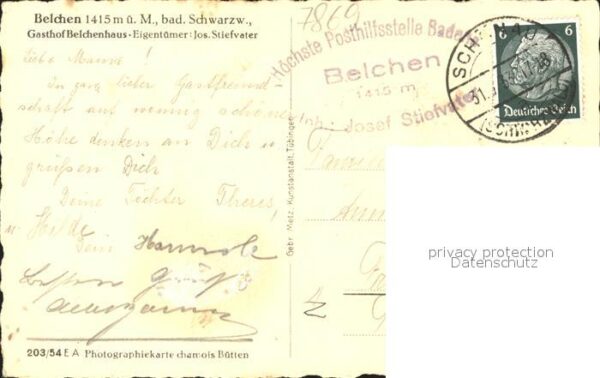 Belchen 1415 m ü. M., bad. Schwarzw.,
Gasthof Belchenhaus - Eigentümer: Jos. Stiefvater
Liebe Mamma!
In ganz lieber Gastfreund-
schaft auf wenig schöne
Höhe denken an Dich u.
grüßen Dich
Deine Töchter Theres
u. Hilde
Dein
Besten Gruß
203/54 E A Photographiekarte chamois Bütten
Gebr. Metz, Kunstanstalt, Tübingen
7869
Höchste Posthilfsstelle Badens
Belchen
1415 m
Inh.: Josef Stiefvater
SCHÖNAU
(SCHWARZW)
6 6
Deutsches Reich
privacy protection
Datenschutz